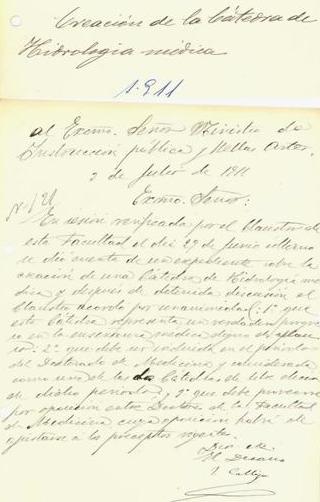 Creación de la Cátedra de
Hidrología médica
1.911
Al Excmo. Señor Ministro de
Instrucción pública y Bellas Artes.
3 de Julio de 1911
Excmo. Señor:
Nº 121
En sesión verificada por el Claustro de
esta Facultad el día 27 de Junio último
se dió cuenta de un expediente sobre la
creación de una Cátedra de Hidrología mé
dica y después de detenida discusión el
Claustro acordó por unanimidad: 1º que
esta Cátedra representa un verdadero progre
so en la enseñanza médica digno de
2º que debe ser incluida en el período
del Doctorado de Medicina y considerada
como una de las Cátedras de
de dicho período, y 3º que debe proveerse
por oposición entre Doctores de la Facultad
de Medicina cuya oposición habrá de
ajustarse a los preceptos vigentes.
Dios &a
El Decano
J. Calleja